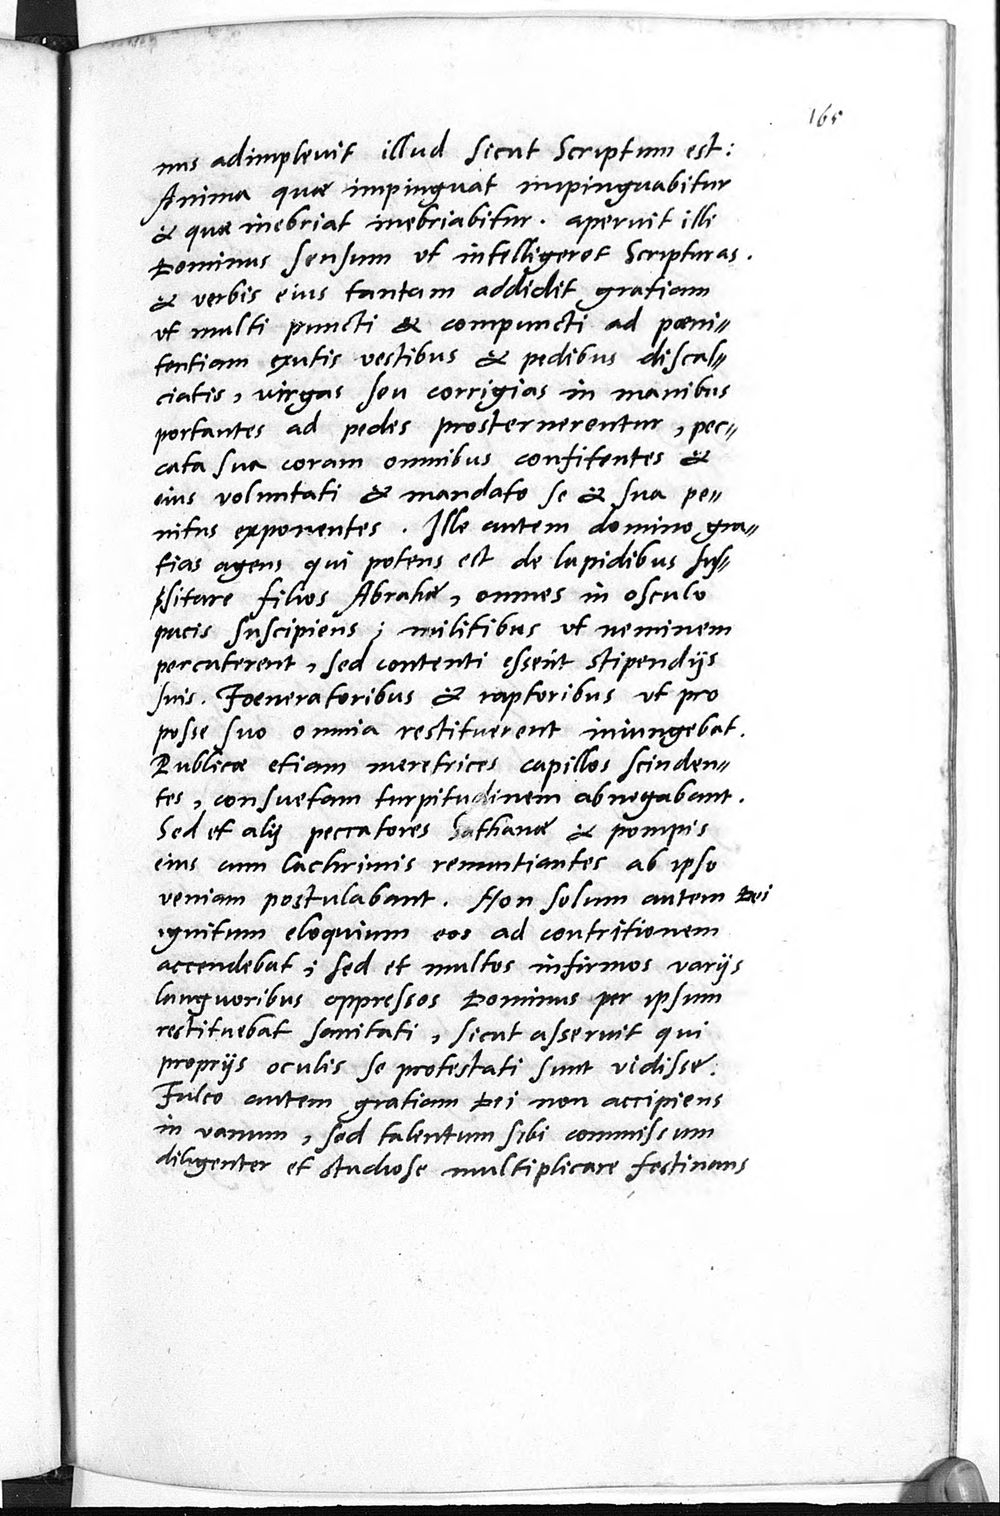 165
nus adimplevit illud sicut Scriptum est:
Anima quæ impinguat impinguabitur
& quæ inebriat inebriabitur. aperuit illi
Dominus sensum ut intelligeret Scripturas.
& verbis eius tantam addidit gratiam
ut multi puncti & compuncti ad pœni〃
tentiam exutis vestibus & pedibus discal〃
ciatis, virgas seu corrigias in manibus
portantes ad pedes prosternerentur, pec〃
cata sua coram omnibus confitentes &
eius voluntati & mandato se & sua pe〃
nitus exponentes. Ille autem domino gra〃
tias agens qui potens est de lapidibus sus〃
psitare filios Abrahæ, omnes in osculo
pacis suscipiens; militibus ut neminem
percuterent, sed contenti essent stipendijs
suis. Foeneratoribus & raptoribus ut pro
posse suo omnia restituerent iniungebat.
Publicæ etiam meretrices capillos scinden〃
tes, consuetam turpitudinem abnegabant.
Sed et alij peccatores Sathanæ & pompis
eius cum lachrimis renuntiantes ab ipso
veniam postulabant. Non solum autem Dei
ignitum eloquium eos ad contritionem
accendebat; sed et multos infirmos varijs
languoribus oppressos Dominus per ipsum
restituebat sanitati, sicut asseruit qui
proprijs oculis se protestati sunt vidisse.
Fulco autem gratiam Dei non accipiens
in vanum, sed talentum sibi commissum
diligenter et studiose multiplicare festinans